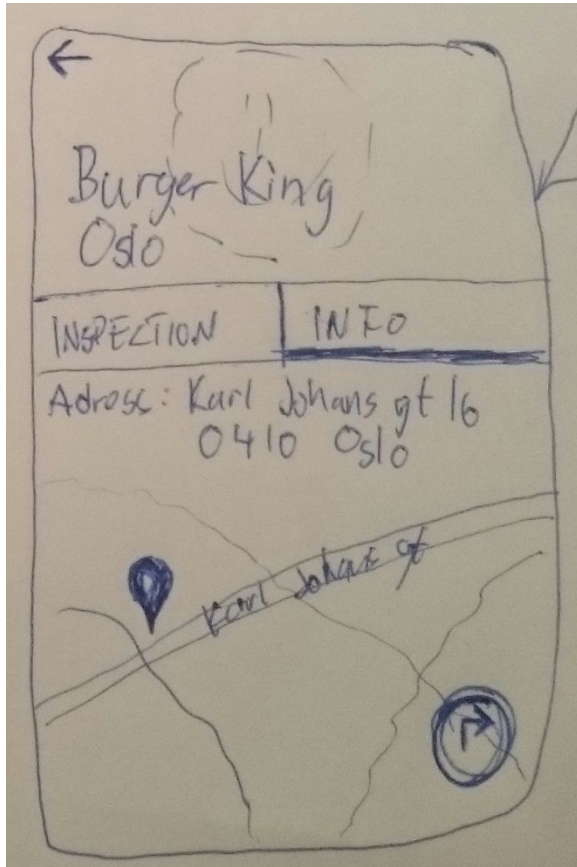 Burger King
Oslo
INSPECTION
INFO
Adress: Karl Johans gt 16
0410 Oslo
Karl Johans gt